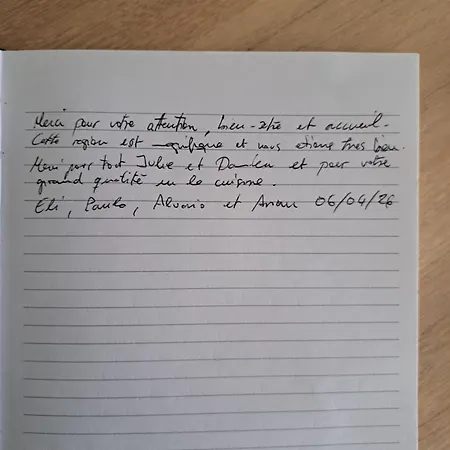 Merci pour votre attention, bien-etre et accueil.
Cette region est magnifique et nous etions tres bien.
Merci pour tout Julie et Damien et pour votre
grand qualité en la cuisine.
Eli, Paulo, Alvaro et 06/04/26